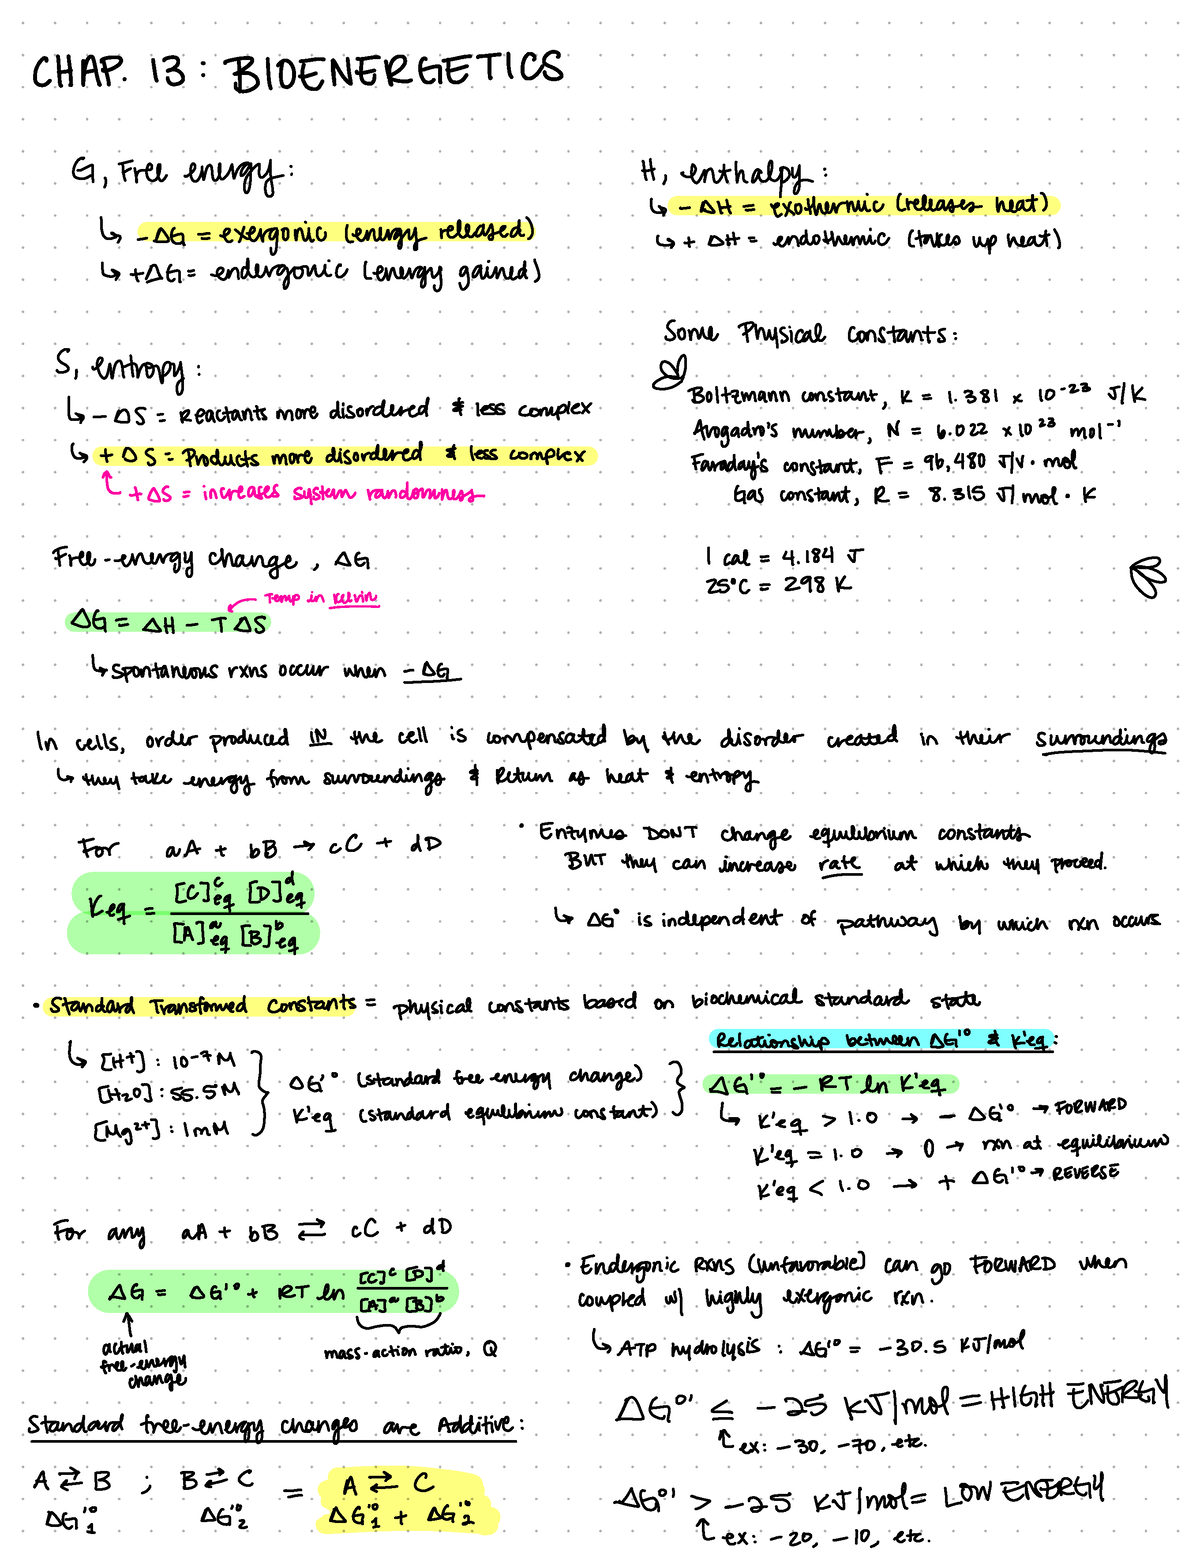 CHAP. 13: BIOENERGETICS
G, Free energy:
↳ -ΔG = exergonic (energy released)
↳ +ΔG = endergonic (energy gained)
H, enthalpy:
↳ - ΔH = exothermic (releases heat)
↳ + ΔH = endothemic (takes up heat)
S, entropy:
↳ - ΔS = Reactants more disordered & less complex
↳ + ΔS = Products more disordered & less complex
+ΔS = increases system randomness
Some Physical Constants:
Boltzmann constant, K = 1.381 x 10⁻²³ J/K
Avogadro's number, N = 6.022 x 10²³ mol⁻¹
Faraday's constant, F = 96,480 J/V·mol
Gas constant, R = 8.315 J/mol·K
1 cal = 4.184 J
25°C = 298 K
Free-energy change, ΔG
Temp in Kelvin
ΔG = ΔH - TΔS
↳ Spontaneous rxns occur when - ΔG
In cells, order produced IN the cell is compensated by the disorder created in their surroundings
↳ they take energy from surroundings & Return as heat & entropy
For aA + bB → cC + dD
Keq = [C]ᶜeq [D]ᵈeq
[A]ᵃeq [B]ᵇeq
• Enzymes DONT change equilibrium constants
BUT they can increase rate at which they proceed.
↳ ΔG° is independent of pathway by which rxn occurs
• Standard Transformed Constants = physical constants based on biochemical standard state
↳ [H+] : 10⁻⁷ M
[H₂O] : 55.5 M
[Mg²⁺] : 1mM
ΔG'° (standard free energy change)
K'eq (standard equilibrium constant)
Relationship between ΔG'° & K'eq:
ΔG'° = - RT ln K'eq
↳ K'eq > 1.0 → - ΔG'° → FORWARD
K'eq = 1.0 → 0 → rxn at equilibrium
K'eq < 1.0 → + ΔG'° → REVERSE
For any aA + bB ⇄ cC + dD
ΔG = ΔG'° + RT ln [C]ᶜ [D]ᵈ
[A]ᵃ [B]ᵇ
actual
free-energy
change
mass-action ratio, Q
• Endergonic Rxns (unfavorable) can go FORWARD when
coupled w/ highly exergonic rxn.
↳ ATP hydrolysis : ΔG'° = -30.5 KJ/mol
ΔG°' ≤ -25 KJ/mol = HIGH ENERGY
ex: -30, -70, etc.
ΔG°' > -25 KJ/mol = LOW ENERGY
ex: -20, -10, etc.
Standard free-energy changes are Additive:
A ⇄ B ; B ⇄ C = A ⇄ C
ΔG'°₁ ΔG'°₂ ΔG'°₁ + ΔG'°₂